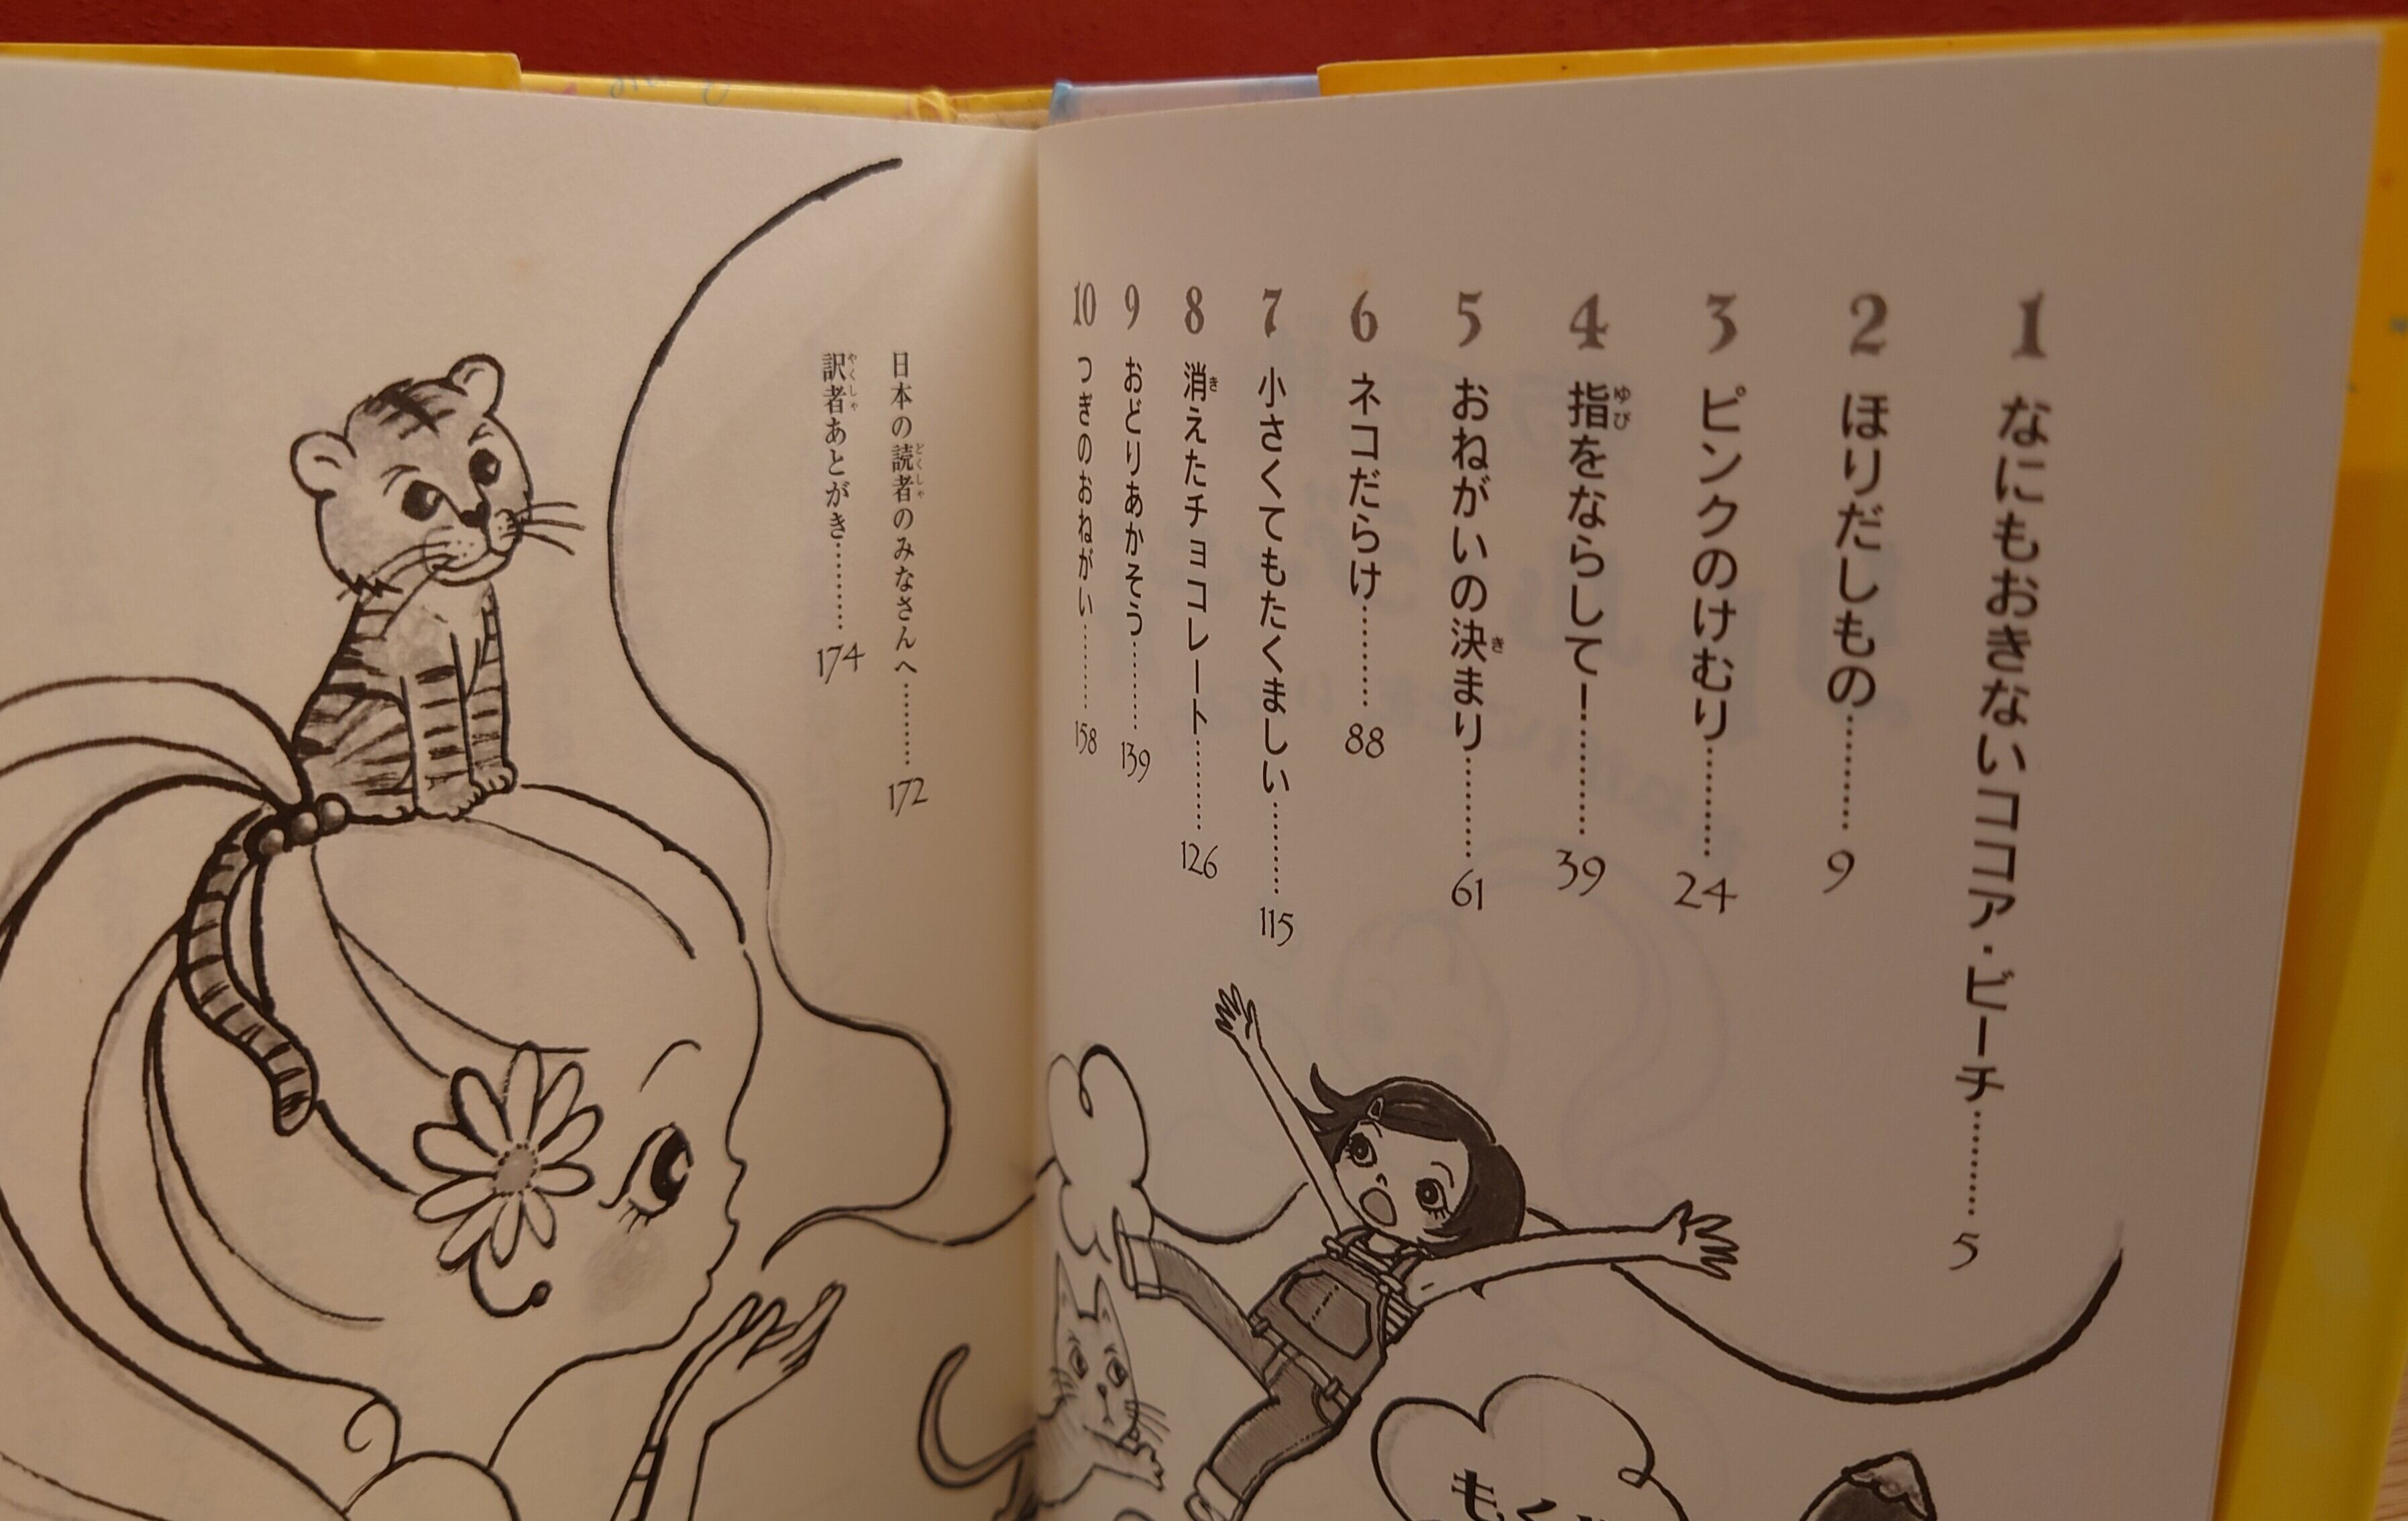 1 なにもおきないココア・ビーチ………5
2 ほりだしもの………9
3 ピンクのけむり………24
4 指をならして！………39
5 おねがいの決まり………61
6 ネコだらけ………88
7 小さくてもたくましい………115
8 消えたチョコレート………126
9 おどりあかそう………139
10 つぎのおねがい………158
日本の読者のみなさんへ………172
訳者あとがき………174
もく